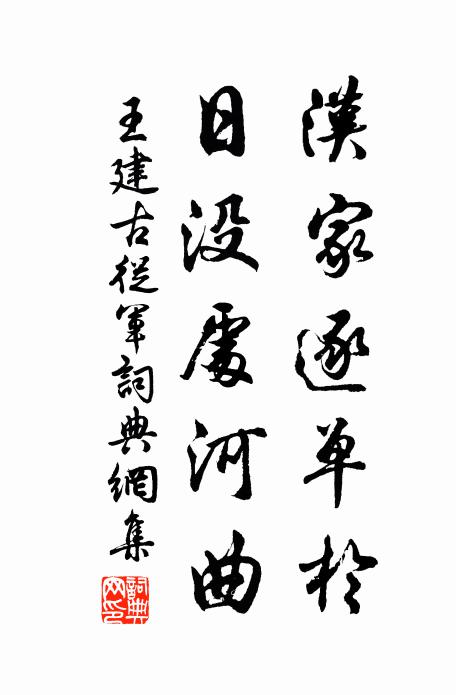 漢家逐單於
日没處河曲
王建古從軍詞典網集
詞典
网印